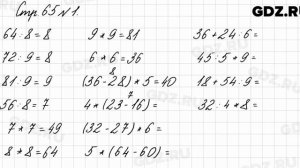 Стр. 65 № 1.
GDZ.RU
64 : 8 = 8
9 * 9 = 81
36 + 24 : 6 =
72 : 9 = 8
6 * 6 = 36
45 : 5 * 9 =
81 : 9 = 9
8
(36 - 28) * 5 = 40
18 + 54 : 9 =
56 : 8 = 7
7
4 * (23 - 16) =
32 : 4 * 8 =
7 * 7 = 49
(32 - 27) * 6 =
8 * 8 = 64
5 * (64 - 60) =
GDZ.RU